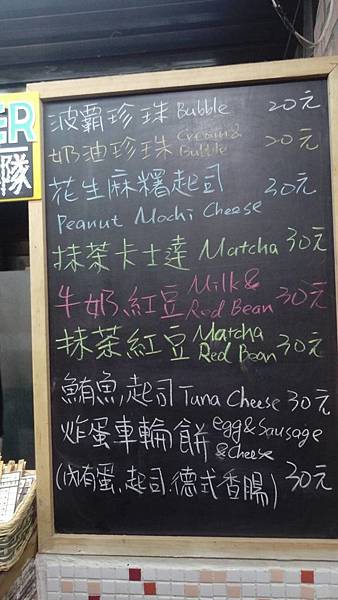 ER
隊
波霸珍珠 Bubble 20元
奶油珍珠 Cream & Bubble 20元
花生麻糬起司 30元
Peanut Mochi Cheese
抹茶卡士達 Matcha 30元
牛奶,紅豆 Milk & Red Bean 30元
抹茶紅豆 Matcha Red Bean 30元
鮪魚,起司 Tuna Cheese 30元
炸蛋車輪餅 egg & Sausage & Cheese
(內有蛋,起司.德式香腸) 30元